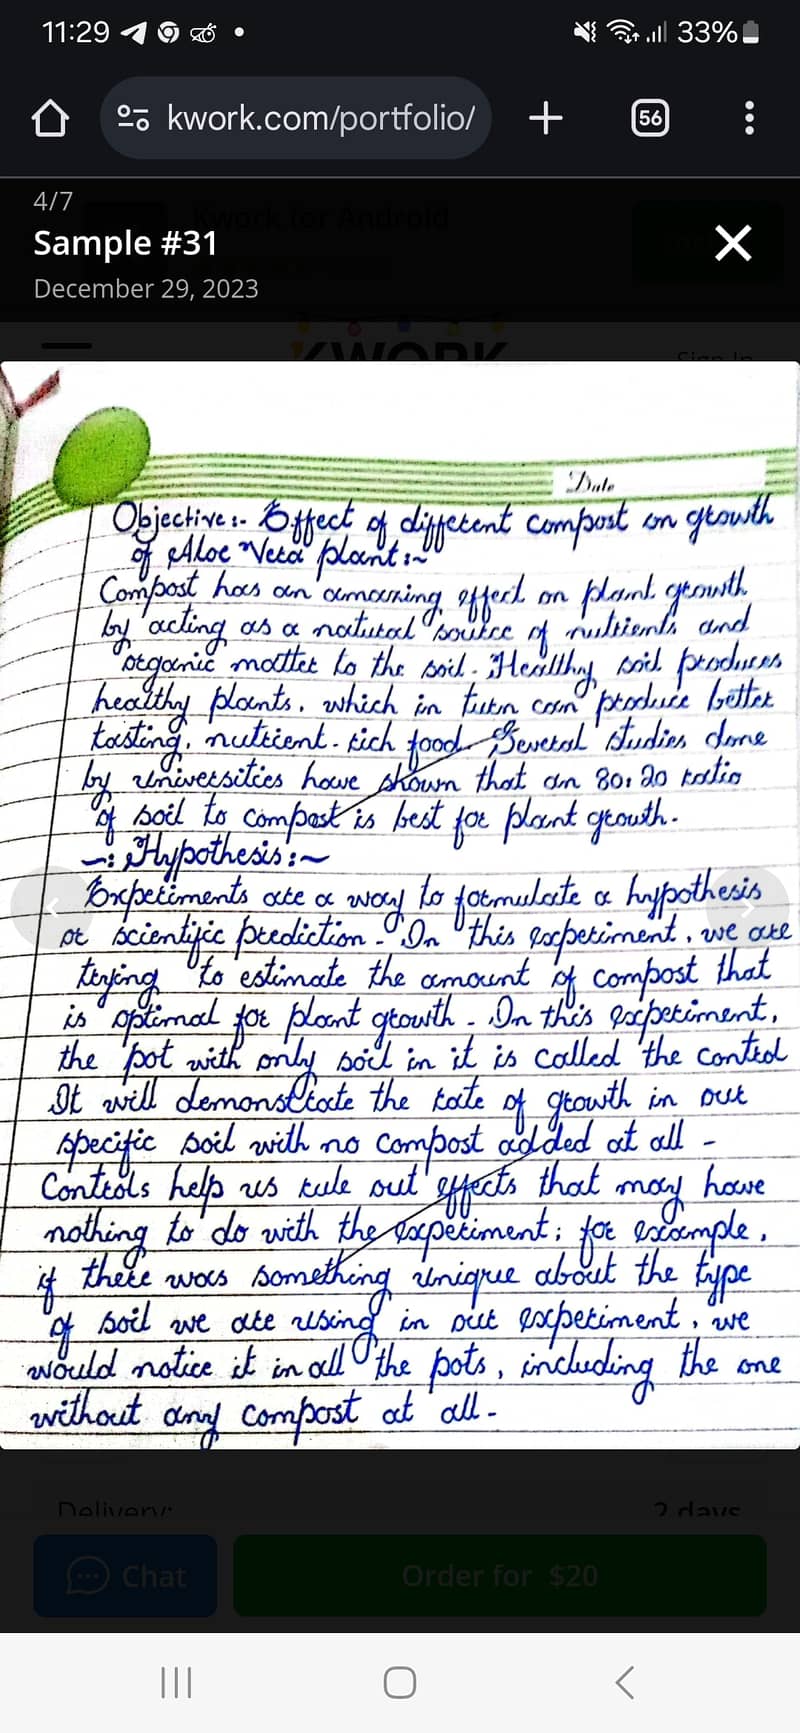 11:29
33%
kwork.com/portfolio/
56
4/7
Kwork for Android
Sample #31
December 29, 2023
KWORK
Sign In
Date
Objective:- Effect of different compost on growth
of Aloe Vera plant:~
Compost has an amazing effect on plant growth
by acting as a natural source of nutrients and
organic matter to the soil. Healthy soil produces
healthy plants, which in turn can produce better
tasting, nutrient-rich food. Several studies done
by universities have shown that an 80:20 ratio
of soil to compost is best for plant growth.
~: Hypothesis:~
Experiments are a way to formulate a hypothesis
or scientific prediction. In this experiment, we are
trying to estimate the amount of compost that
is optimal for plant growth. In this experiment,
the pot with only soil in it is called the control
It will demonstrate the rate of growth in our
specific soil with no compost added at all -
Controls help us rule out effects that may have
nothing to do with the experiment; for example,
if there was something unique about the type
of soil we are using in our experiment, we
would notice it in all the pots, including the one
without any compost at all-
Delivery:
2 days
Chat
Order for $20